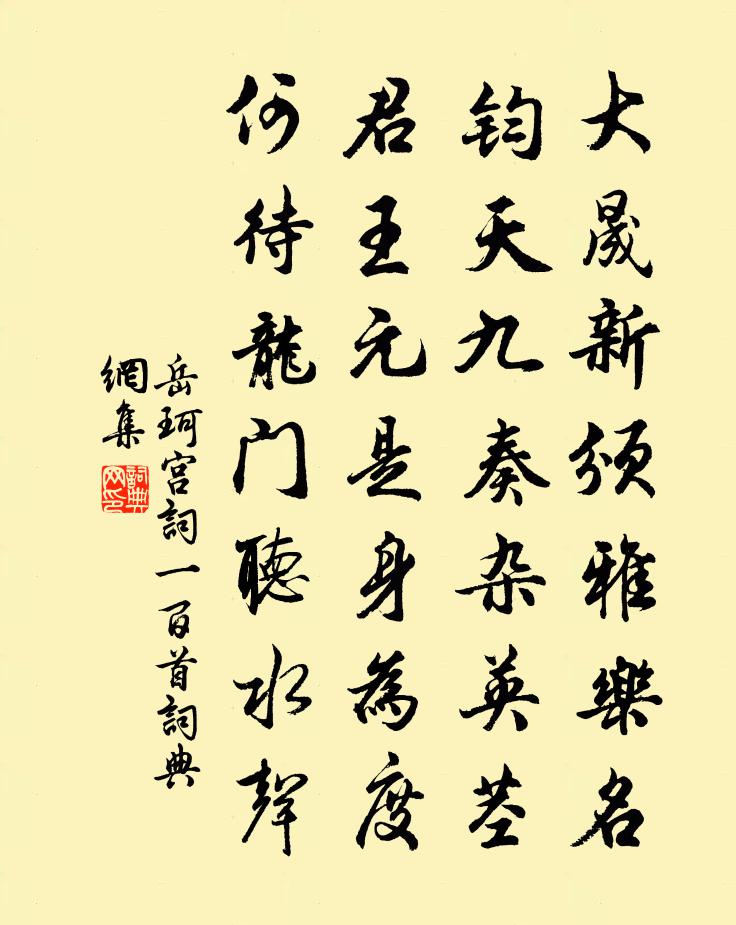 大晟新頒雅樂名
鈞天九奏杂英莖
君王元是身為度
何待龍门聽水聲
岳珂宮詞一百首詞典
網集
詞典
网印